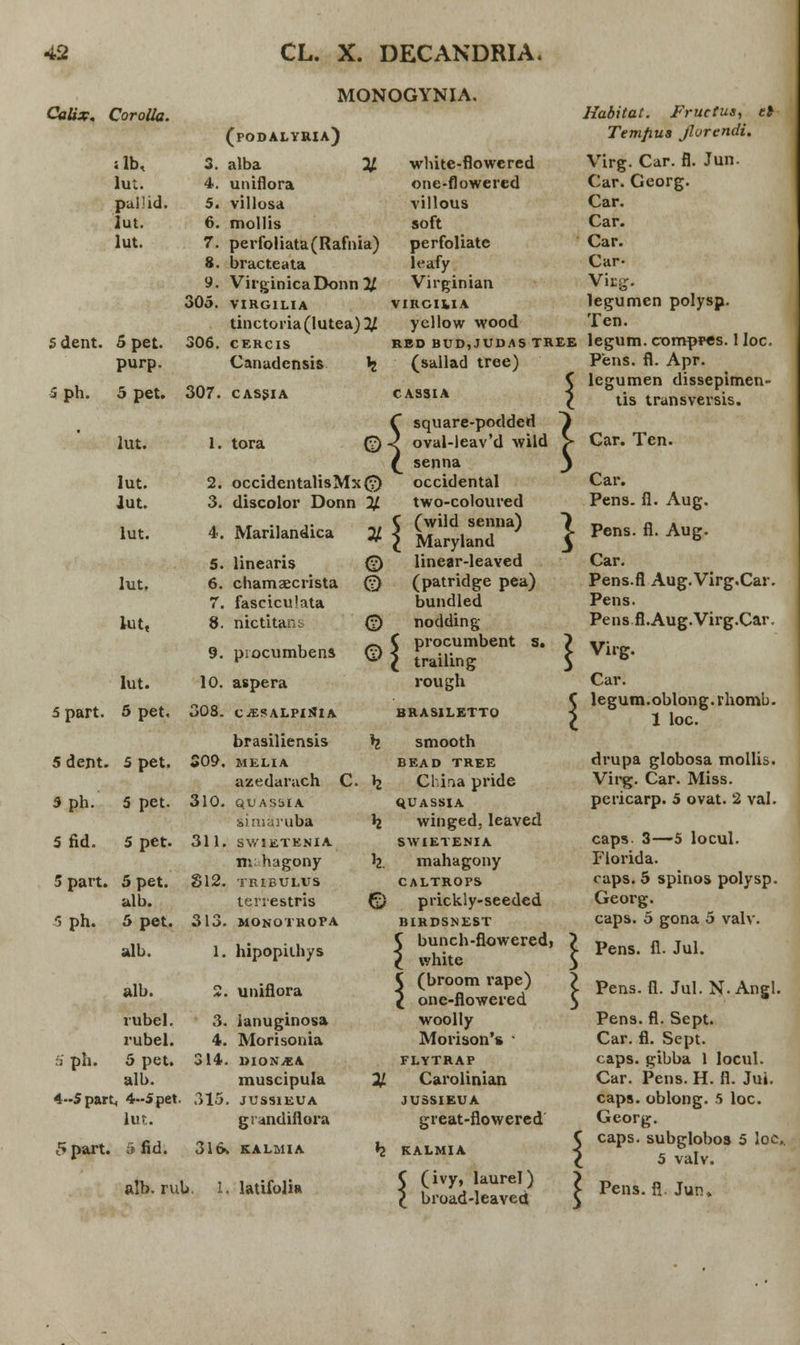 42 CL. X. DECANDRIA.
MONOGYNIA.
Calix. Corolla. Habitat. Fructus, et
(PODALYRIA) Tempus florendi.
alb. 3. alba ♃ white-flowered Virg. Car. fl. Jun.
lut. 4. uniflora one-flowered Car. Georg.
pallid. 5. villosa villous Car.
lut. 6. mollis soft Car.
lut. 7. perfoliata(Rafnia) perfoliate Car.
8. bracteata leafy Car.
9. Virginica Donn ♃ Virginian Virg.
305. VIRGILIA VIRGILIA legumen polysp.
tinctoria(lutea)♃ yellow wood Ten.
5 dent. 5 pet. 306. CERCIS RED BUD,JUDAS TREE legum. compres. 1 loc.
purp. Canadensis ♄ (sallad tree) Pens. fl. Apr.
5 ph. 5 pet. 307. CASSIA CASSIA { legumen dissepimen-
tis transversis.
lut. 1. tora ☉ { square-podded
oval-leav'd wild
senna } Car. Ten.
lut. 2. occidentalisMx☉ occidental Car.
lut. 3. discolor Donn ♃ two-coloured Pens. fl. Aug.
lut. 4. Marilandica ♃ { (wild senna)
Maryland } Pens. fl. Aug.
5. linearis ☉ linear-leaved Car.
lut. 6. chamæcrista ☉ (patridge pea) Pens.fl Aug.Virg.Car.
7. fasciculata bundled Pens.
lut, 8. nictitans ☉ nodding Pens fl.Aug.Virg.Car.
9. procumbens ☉ { procumbent s.
trailing } Virg.
lut. 10. aspera rough Car.
5 part. 5 pet. 308. CÆSALPINIA BRASILETTO { legum.oblong.rhomb.
1 loc.
brasiliensis ♄ smooth
5 dent. 5 pet. 309. MELIA BEAD TREE drupa globosa mollis.
azedarach C. ♄ China pride Virg. Car. Miss.
5 ph. 5 pet. 310. QUASSIA QUASSIA pericarp. 5 ovat. 2 val.
simaruba ♄ winged, leaved
5 fid. 5 pet. 311. SWIETENIA SWIETENIA caps. 3—5 locul.
mahagony ♄. mahagony Florida.
5 part. 5 pet. 312. TRIBULUS CALTROPS caps. 5 spinos polysp.
alb. terrestris ☉ prickly-seeded Georg.
5 ph. 5 pet. 313. MONOTROPA BIRDSNEST caps. 5 gona 5 valv.
alb. 1. hipopithys { bunch-flowered,
white } Pens. fl. Jul.
alb. 2. uniflora { (broom rape)
one-flowered } Pens. fl. Jul. N. Angl.
rubel. 3. lanuginosa woolly Pens. fl. Sept.
rubel. 4. Morisonia Morison's Car. fl. Sept.
5 ph. 5 pet. 314. DIONÆA FLYTRAP caps. gibba 1 locul.
alb. muscipula ♃ Carolinian Car. Pens. H. fl. Jul.
4--5 part, 4--5pet. 315. JUSSIEUA JUSSIEUA caps. oblong. 5 loc.
lut. grandiflora great-flowered Georg.
5 part. 5 fid. 316. KALMIA ♄ KALMIA { caps. subglobos 5 loc.
5 valv.
alb. rub. 1. latifolia { (ivy, laurel)
broad-leaved } Pens. fl. Jun.